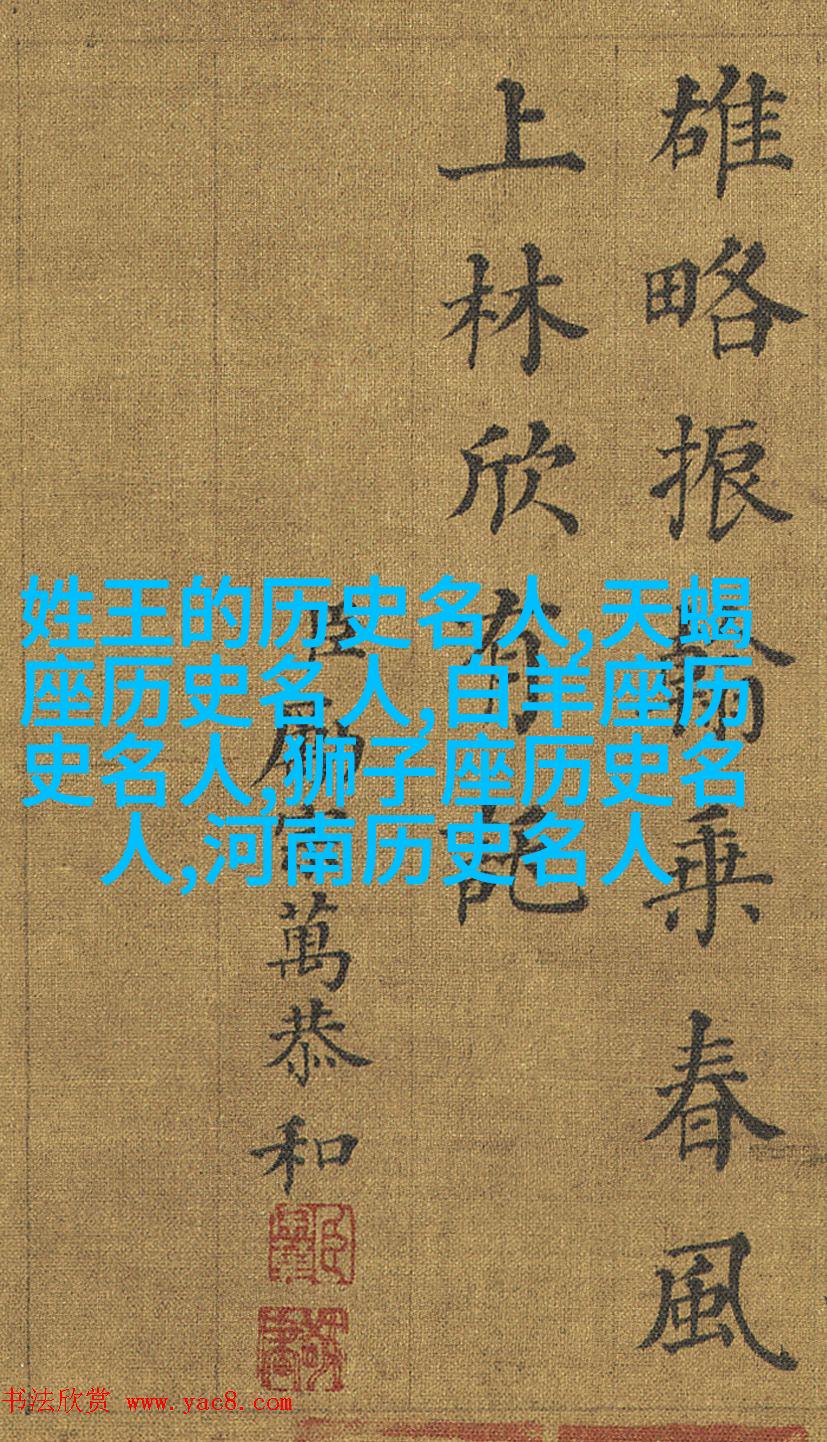 雄略振乘春風
上林欣有託
臣萬恭和
姓王的历史名人,天蝎
座历史名人,白羊座历
史名人,狮子座历史名
人,河南历史名人
书法欣赏 www.yac8.com